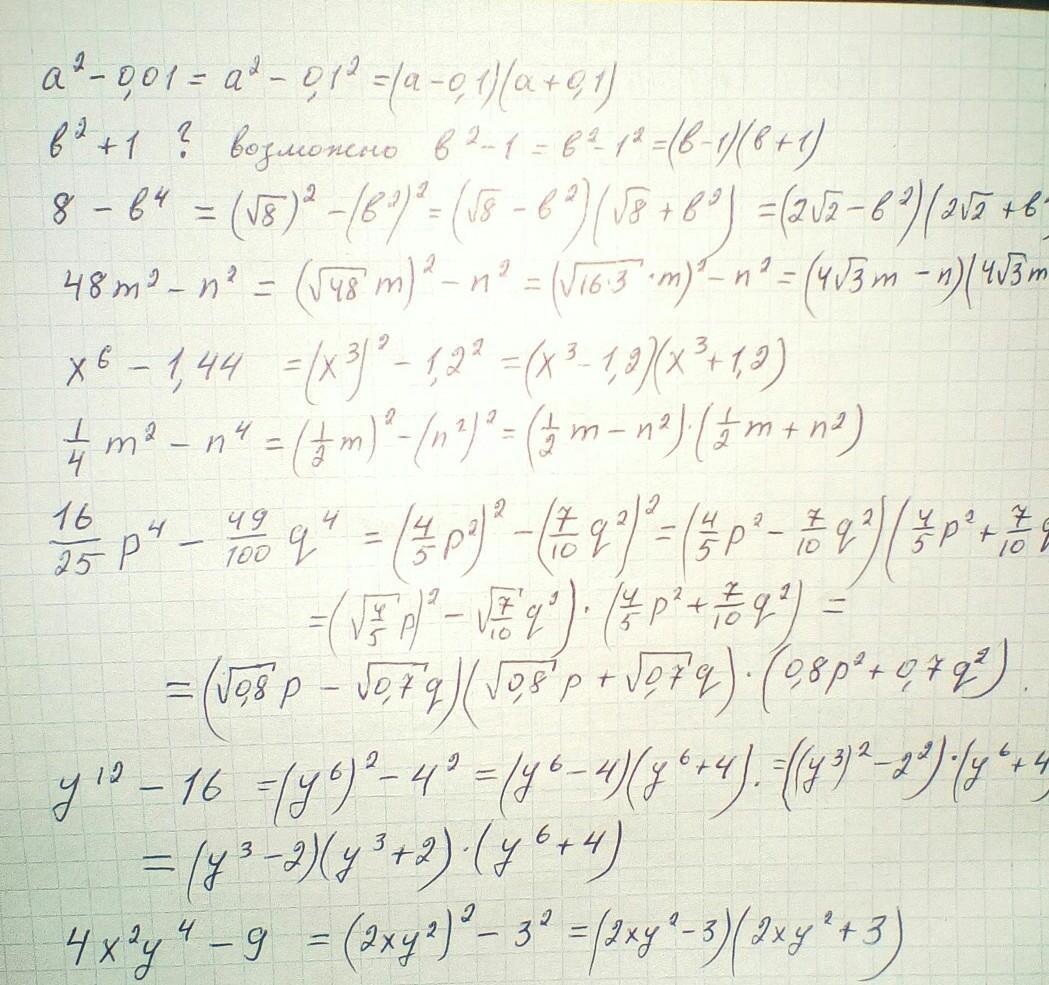 a² - 0,01 = a² - 0,1² = (a - 0,1)(a + 0,1)
в² + 1 ? возможно в² - 1 = в² - 1² = (в - 1)(в + 1)
8 - в⁴ = (√8)² - (в²)² = (√8 - в²)(√8 + в²) = (2√2 - в²)(2√2 + в²
48m² - n² = (√48 m)² - n² = (√16·3 · m)² - n² = (4√3m - n)(4√3m
x⁶ - 1,44 = (x³)² - 1,2² = (x³ - 1,2)(x³ + 1,2)
1/4 m² - n⁴ = (1/2 m)² - (n²)² = (1/2 m - n²)·(1/2 m + n²)
16/25 p⁴ - 49/100 q⁴ = (4/5 p²)² - (7/10 q²)² = (4/5 p² - 7/10 q²)(4/5 p² + 7/10 q
= (√4/5 p)² - √7/10 q²)·(4/5 p² + 7/10 q²) =
= (√0,8 p - √0,7 q)(√0,8 p + √0,7 q)·(0,8p² + 0,7q²).
y¹² - 16 = (y⁶)² - 4² = (y⁶ - 4)(y⁶ + 4). = ((y³)² - 2²)·(y⁶ + 4
= (y³ - 2)(y³ + 2)·(y⁶ + 4)
4x²y⁴ - 9 = (2xy²)² - 3² = (2xy² - 3)(2xy² + 3)